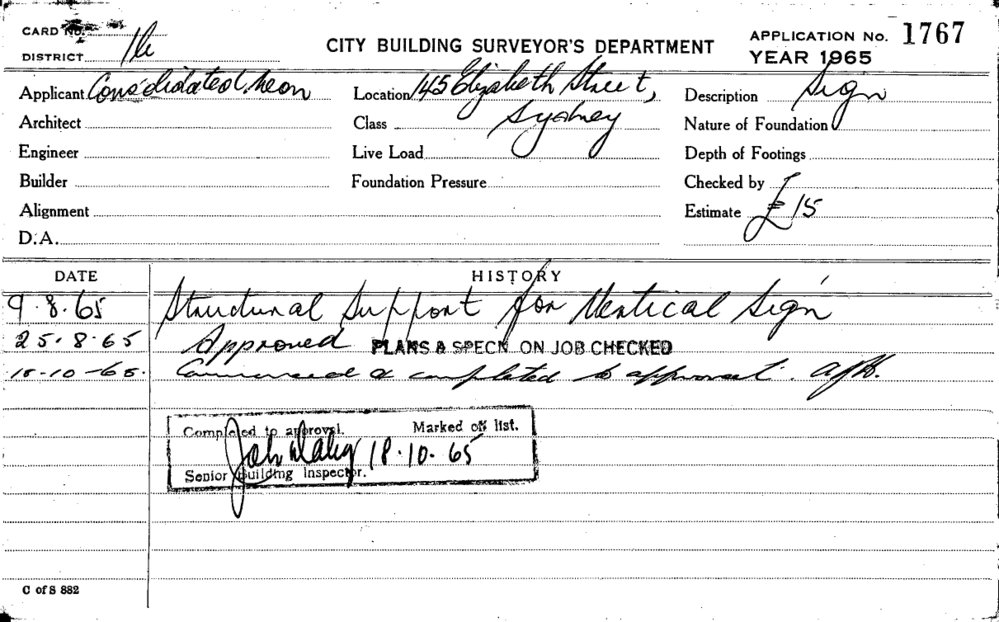 CARD No.
DISTRICT
CITY BUILDING SURVEYOR'S DEPARTMENT
APPLICATION No. 1767
YEAR 1965
Applicant Consolidated Neon
Location 145 Elizabeth Street,
Sydney
Description Sign
Architect
Class
Nature of Foundation
Engineer
Live Load
Depth of Footings
Builder
Foundation Pressure
Checked by
Alignment
Estimate £15
D.A.
DATE
HISTORY
9.8.65 Structural Support for Vertical Sign
25.8.65 Approved PLANS & SPECN ON JOB CHECKED
Commenced & completed to approval.
Completed to approval. Marked off list.
18.10.65
Senior Building Inspector.
C of S 882